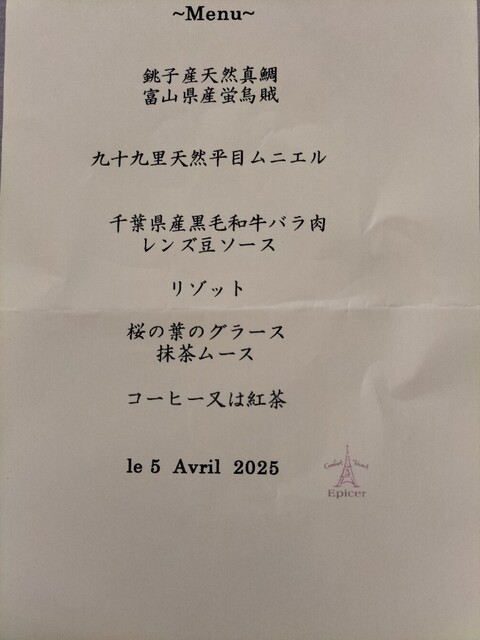 ~Menu~
銚子産天然真鯛
富山県産蛍烏賊
九十九里天然平目ムニエル
千葉県産黒毛和牛バラ肉
レンズ豆ソース
リゾット
桜の葉のグラース
抹茶ムース
コーヒー又は紅茶
le 5 Avril 2025
Epicer